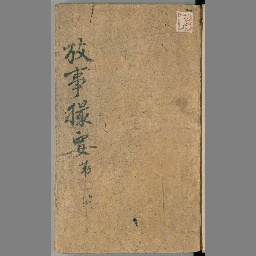 攷事撮要 第